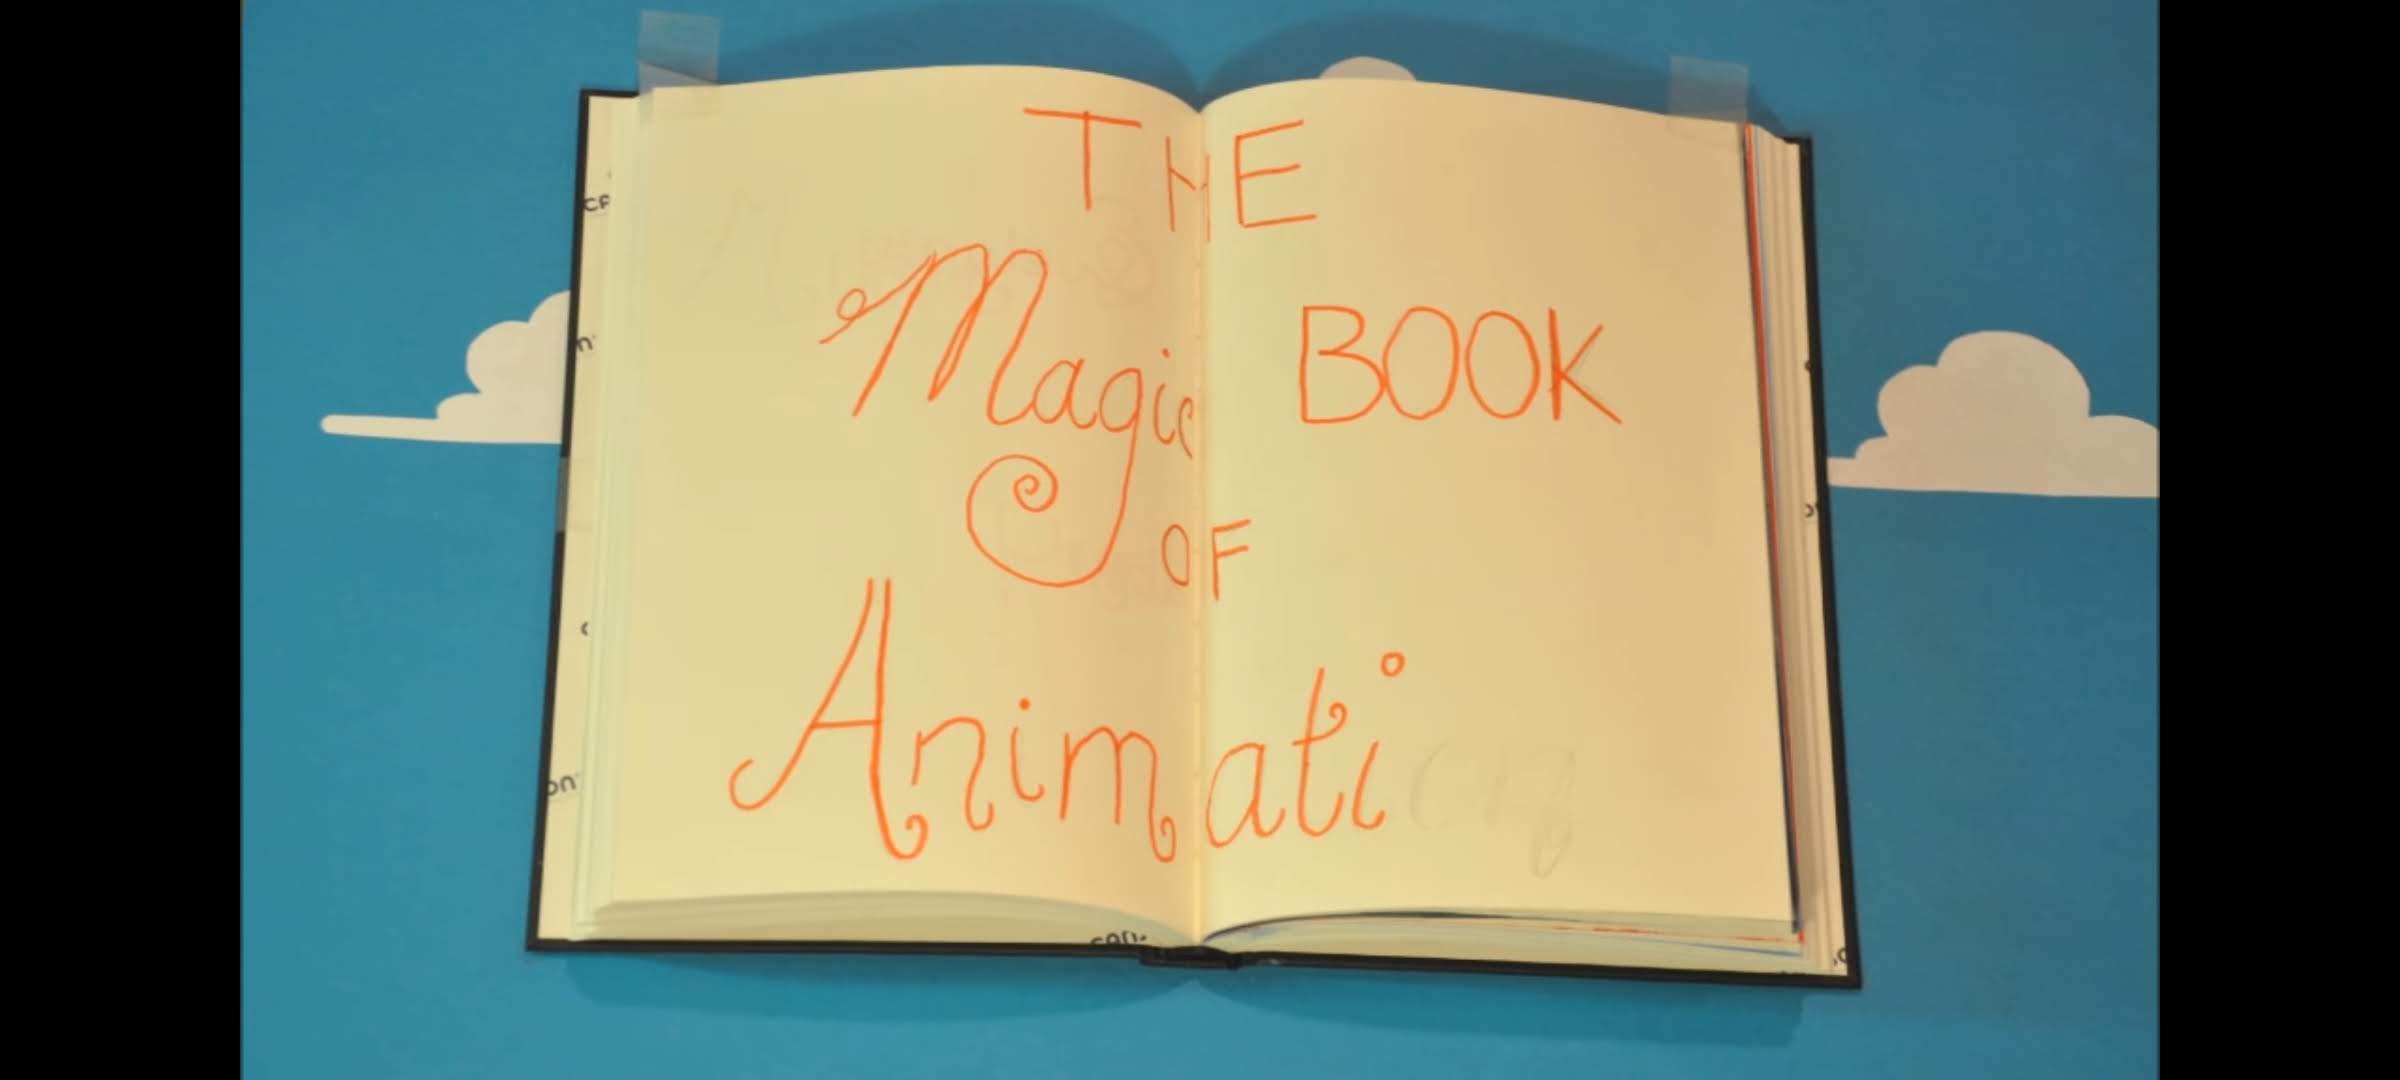 THE
Magic BOOK
OF
Animati